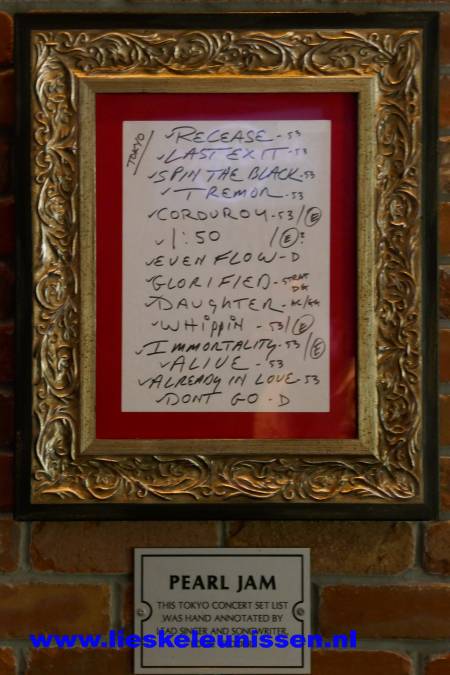 TOKYO
✓RELEASE - 53
✓LAST EXIT - 53
✓SPIN THE BLACK - 53
✓TREMOR - 53
✓CORDUROY - 53/Ⓔ
✓1:50 /Ⓔ?
✓EVEN FLOW - D
✓GLORIFIED - STRAT DG
✓DAUGHTER -
✓WHIPPIN - 53/Ⓔ
✓IMMORTALITY - 53/Ⓔ
✓ALIVE - 53
✓ALREADY IN LOVE - 53
✓DONT GO - D
PEARL JAM
THIS TOKYO CONCERT SET LIST
WAS HAND ANNOTATED BY
LEAD SINGER AND SONGWRITER
www.lieskeleunissen.nl